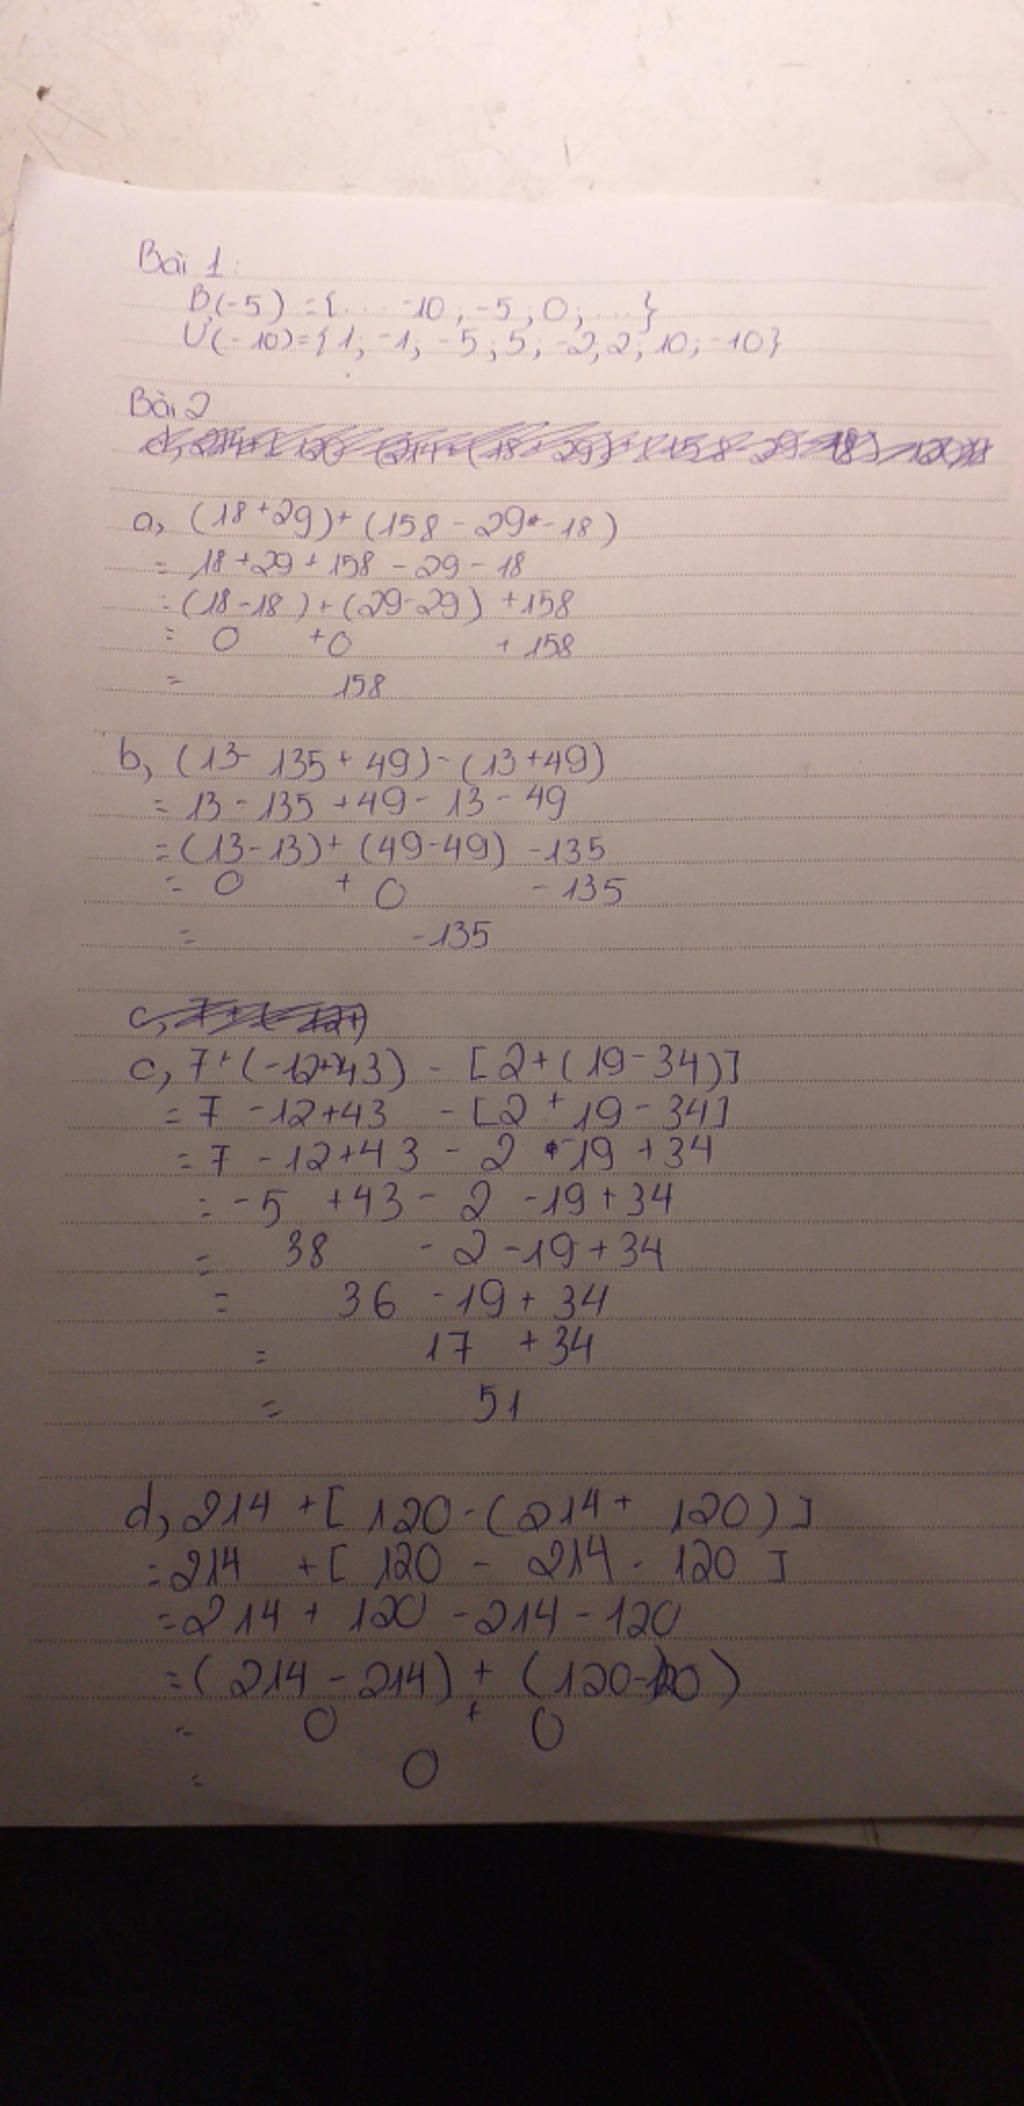 Bài 1:
B(-5) = {... -10; -5; 0; ...}
Ư(-10) = {1; -1; -5; 5; -2; 2; 10; -10}
Bài 2
a, (18 + 29) + (158 - 29 - 18)
= 18 + 29 + 158 - 29 - 18
= (18 - 18) + (29 - 29) + 158
= 0 + 0 + 158
= 158
b, (13 - 135 + 49) - (13 + 49)
= 13 - 135 + 49 - 13 - 49
= (13 - 13) + (49 - 49) - 135
= 0 + 0 - 135
= -135
c,
c, 7 + (-12 + 43) - [2 + (19 - 34)]
= 7 - 12 + 43 - [2 + 19 - 34]
= 7 - 12 + 43 - 2 - 19 + 34
= -5 + 43 - 2 - 19 + 34
= 38 - 2 - 19 + 34
= 36 - 19 + 34
= 17 + 34
= 51
d, 214 + [120 - (214 + 120)]
= 214 + [120 - 214 - 120]
= 214 + 120 - 214 - 120
= (214 - 214) + (120 - 120)
= 0 + 0
= 0